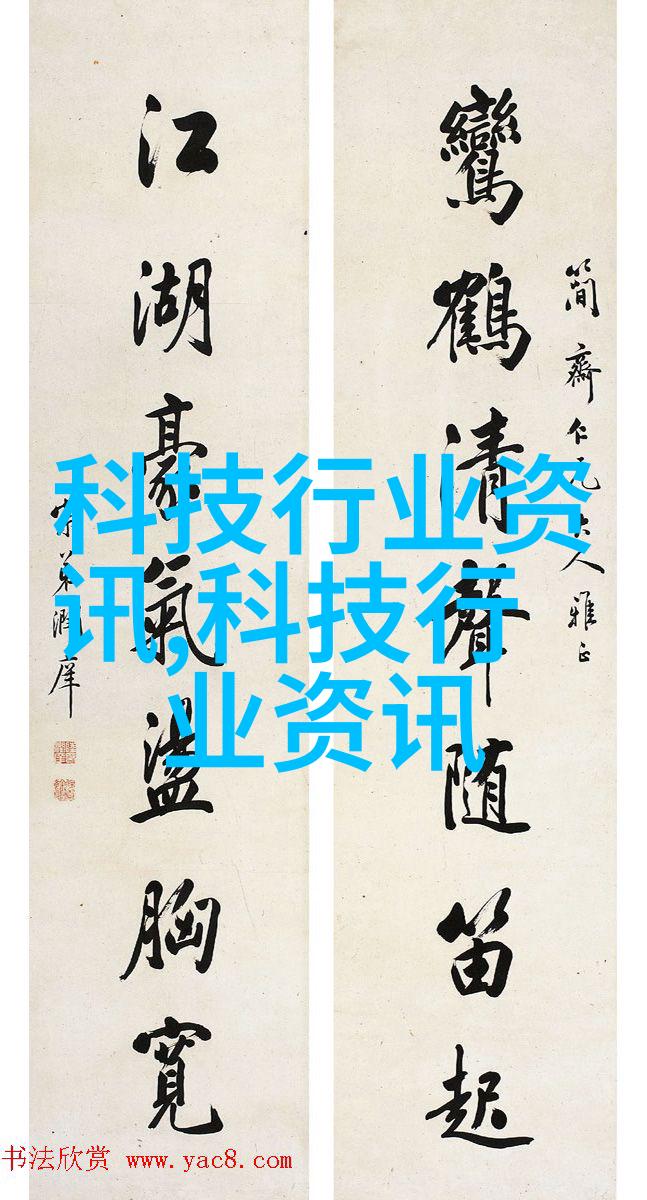 鸞鶴清聲随笛起
簡齋仁兄大人雅正
江湖豪氣盪胸寬
宗弟潤庠
科技行业资
讯,科技行
业资讯
书法欣赏 www.yac8.com